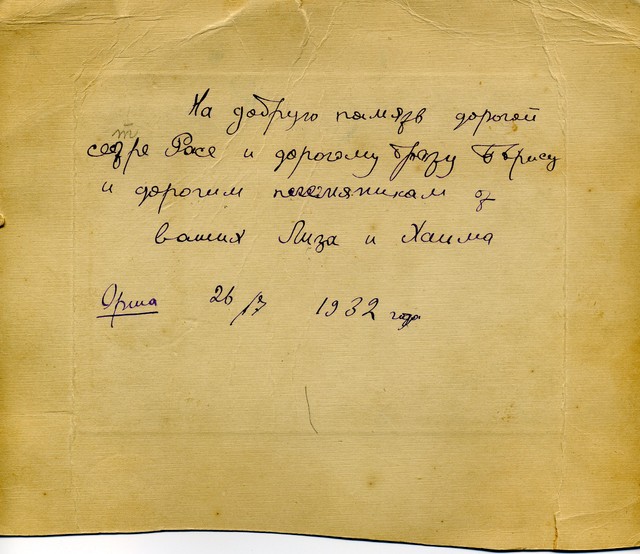 На добрую память дорогой
сестре Расе и дорогому брату Борису
и дорогим племяникам от
ваших Лиза и Хаима
Орша 26 1932 года